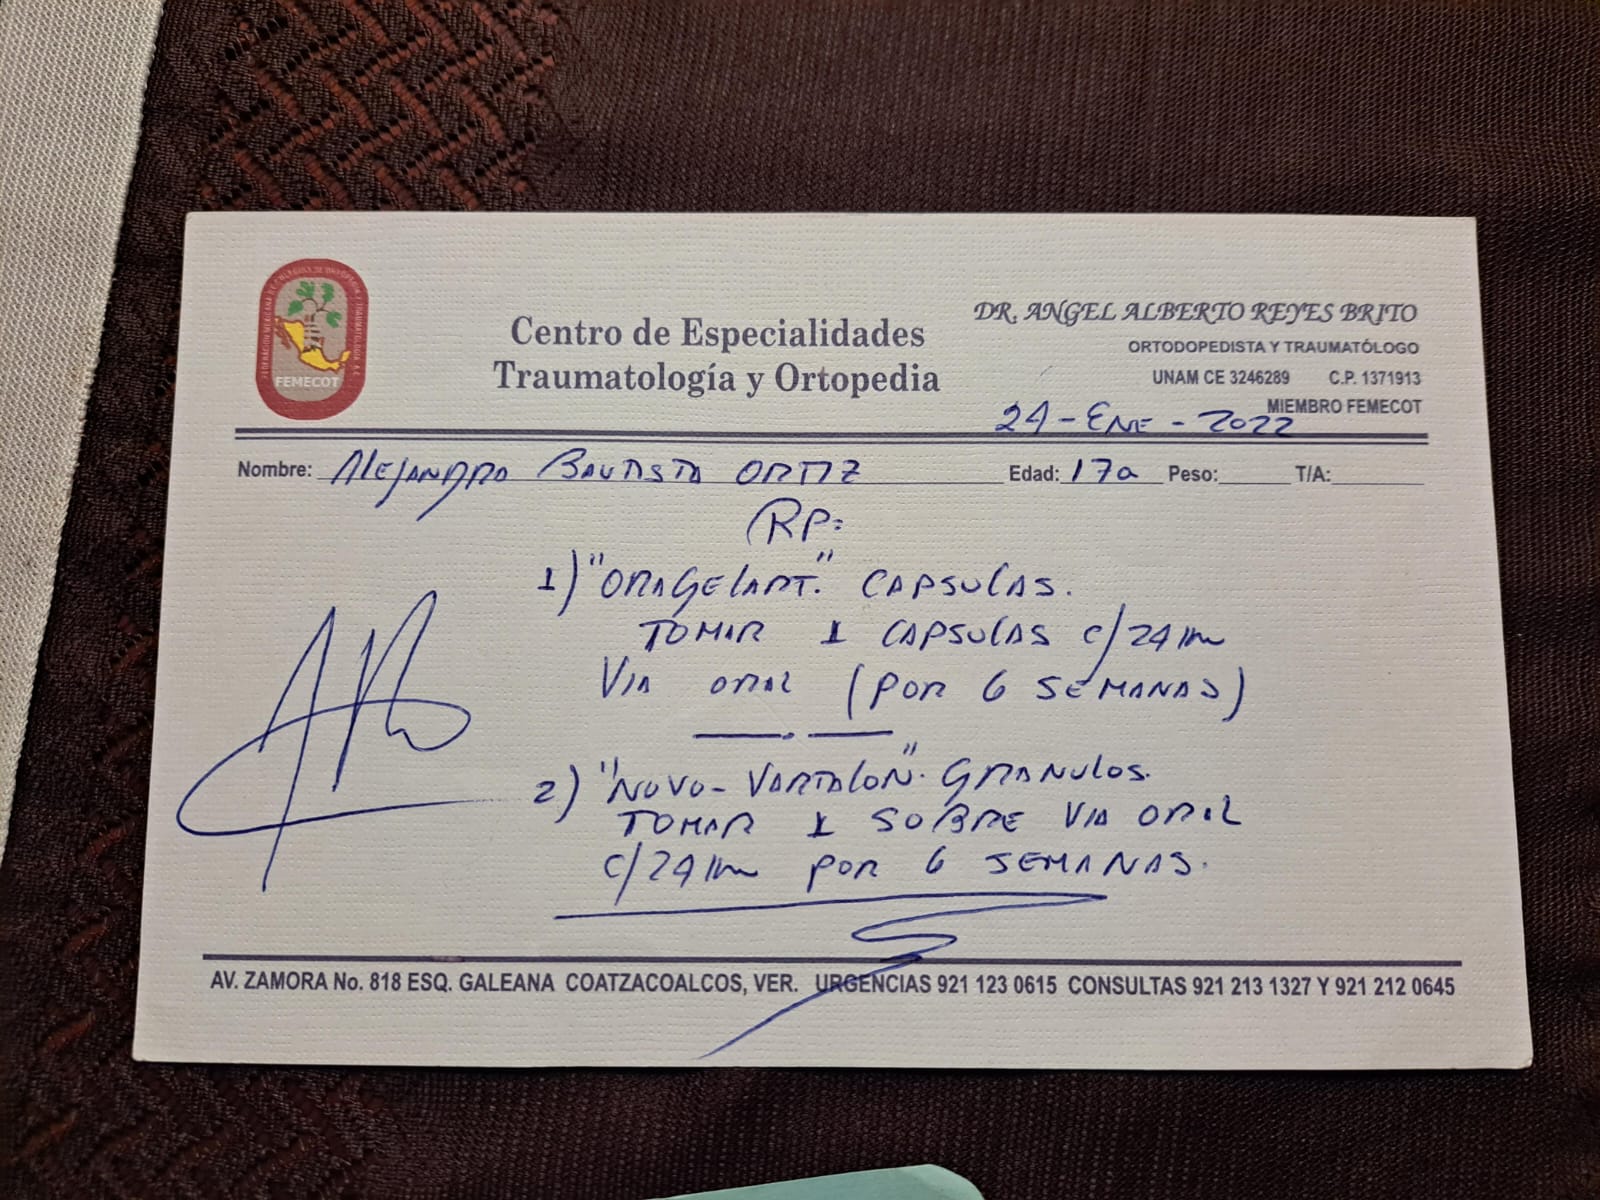 FEDERACIÓN MEXICANA DE COLEGIOS DE ORTOPEDIA Y TRAUMATOLOGÍA A.C.
FEMECOT
Centro de Especialidades
Traumatología y Ortopedia
DR. ANGEL ALBERTO REYES BRITO
ORTODOPEDISTA Y TRAUMATÓLOGO
UNAM CE 3246289 C.P. 1371913
MIEMBRO FEMECOT
24-ENE-2022
Nombre: ALEJANDRO BAUTISTA ORTIZ Edad: 17a Peso: T/A:
RP:
1) "ORAGELART." CAPSULAS.
TOMAR 1 CAPSULAS c/24 hrs
VIA ORAL (POR 6 SEMANAS)
2) "NOVO-VARTALON". GRANULOS.
TOMAR 1 SOBRE VIA ORAL
c/24 hrs POR 6 SEMANAS.
AV. ZAMORA No. 818 ESQ. GALEANA COATZACOALCOS, VER. URGENCIAS 921 123 0615 CONSULTAS 921 213 1327 Y 921 212 0645